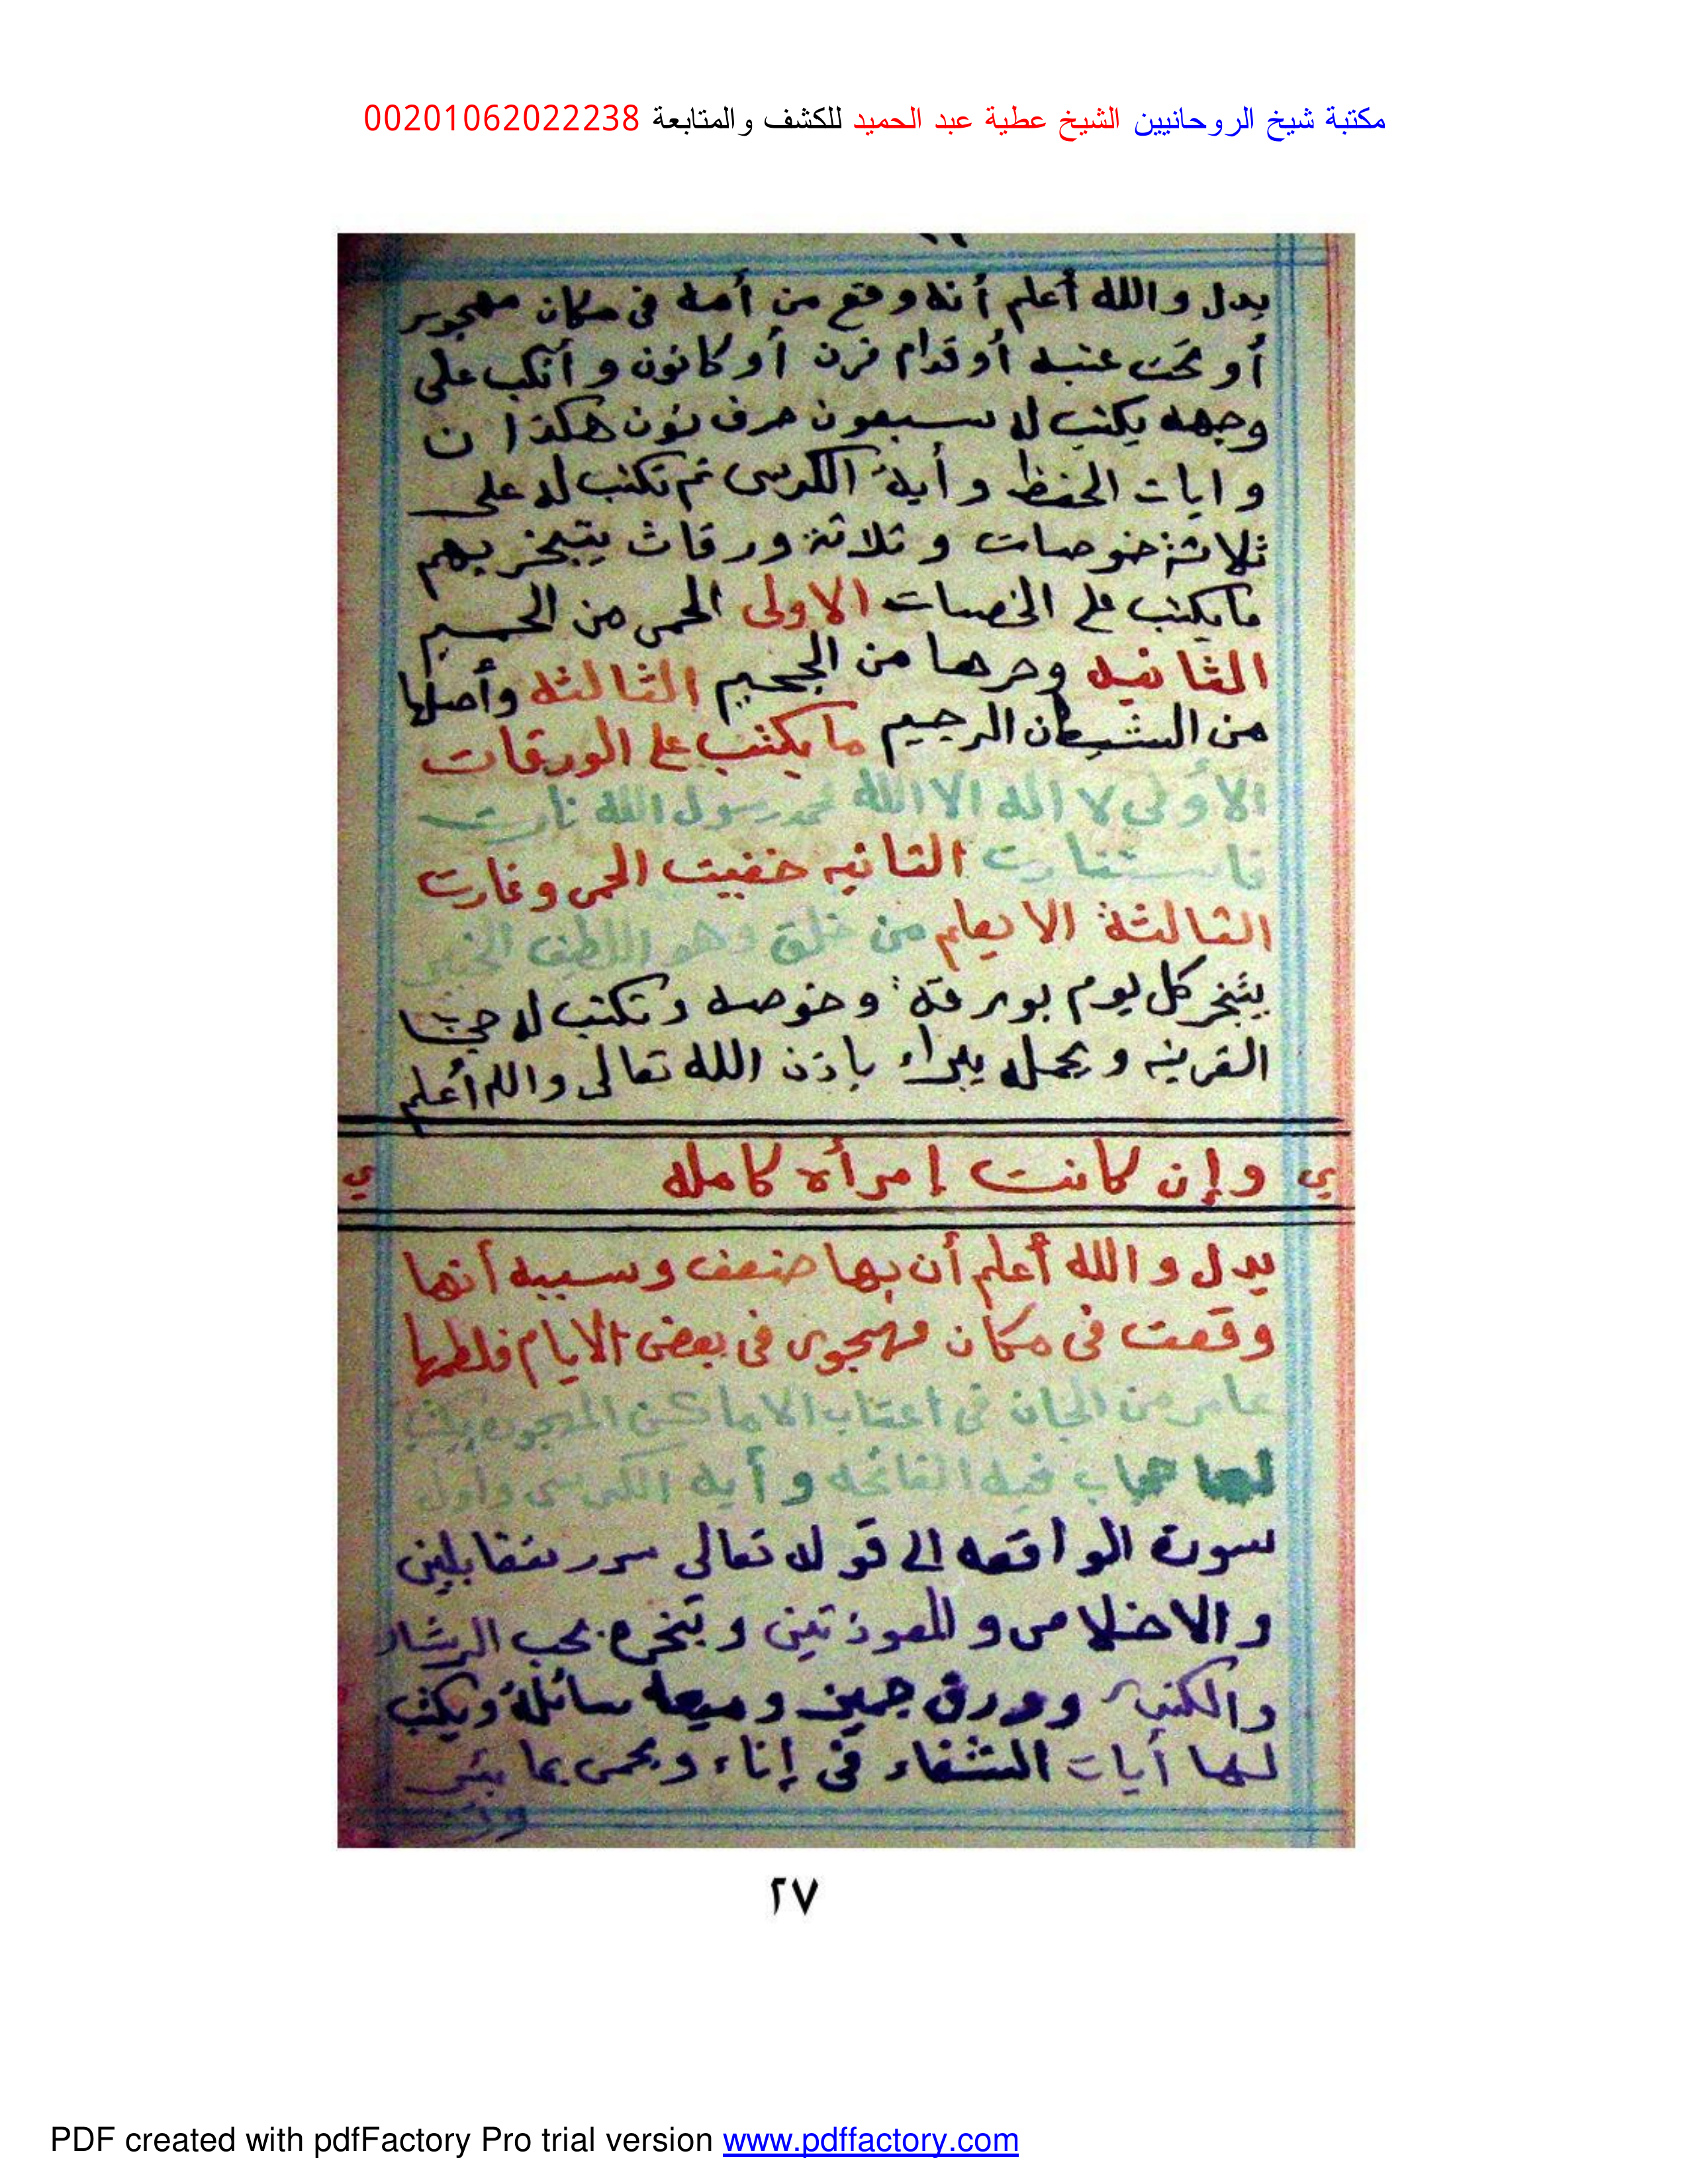 مكتبة شيخ الروحانيين الشيخ عطية عبد الحميد للكشف والمتابعة 00201062022238
يدل والله أعلم أنه وقع من أمه في مكان مهجور
أو تحت عتبه أو قدام فرن أو كانون وأنكب على
وجهه يكتب له سبعون حرف نون هكذا ن
وايات الحفظ وأية الكرسى ثم تكتب له على
ثلاثة خوصات وثلاثة ورقات يتبخر بهم
ما يكتب على الخصات الاولى الحمى من الحميم
الثانيه وحرها من الجحيم الثالثه وأصلها
من الشيطان الرجيم ما يكتب على الورقات
الأولى لا اله الا الله محمد رسول الله نارت
فاستنارت الثانيه خفيت الحمى وغارت
الثالثة الا يعلم من خلق وهو اللطيف الخبير
يتبخر كل يوم بورقة وخوصه وتكتب له حجاب
القرينه ويحمله يبراء باذن الله تعالى والله أعلم
ي وإن كانت إمرأه كامله ي
يدل والله أعلم أن بها ضعف وسببه أنها
وقعت في مكان مهجور في بعض الايام فلطمها
عامر من الجان في اعتاب الاماكن المهجوره يكتب
لها حجاب فيه الفاتحه وأيه الكرسى واول
سورة الواقعه الى قوله تعالى سرر متقابلين
والاخلاص والمعوذتين وتبخره بحب الرشاد
والكندر وورق جميز وميعه سائلة ويكتب
لها أيات الشفاء في إناء ويمحى بماء بئر
٢٧
PDF created with pdfFactory Pro trial version www.pdffactory.com